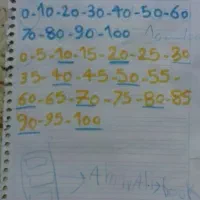 0-10-20-30-40-50-60
70-80-90-100
0-5-10-15-20-25-30
35-40-45-50-55-
60-65-70-75-80-85
90-95-100